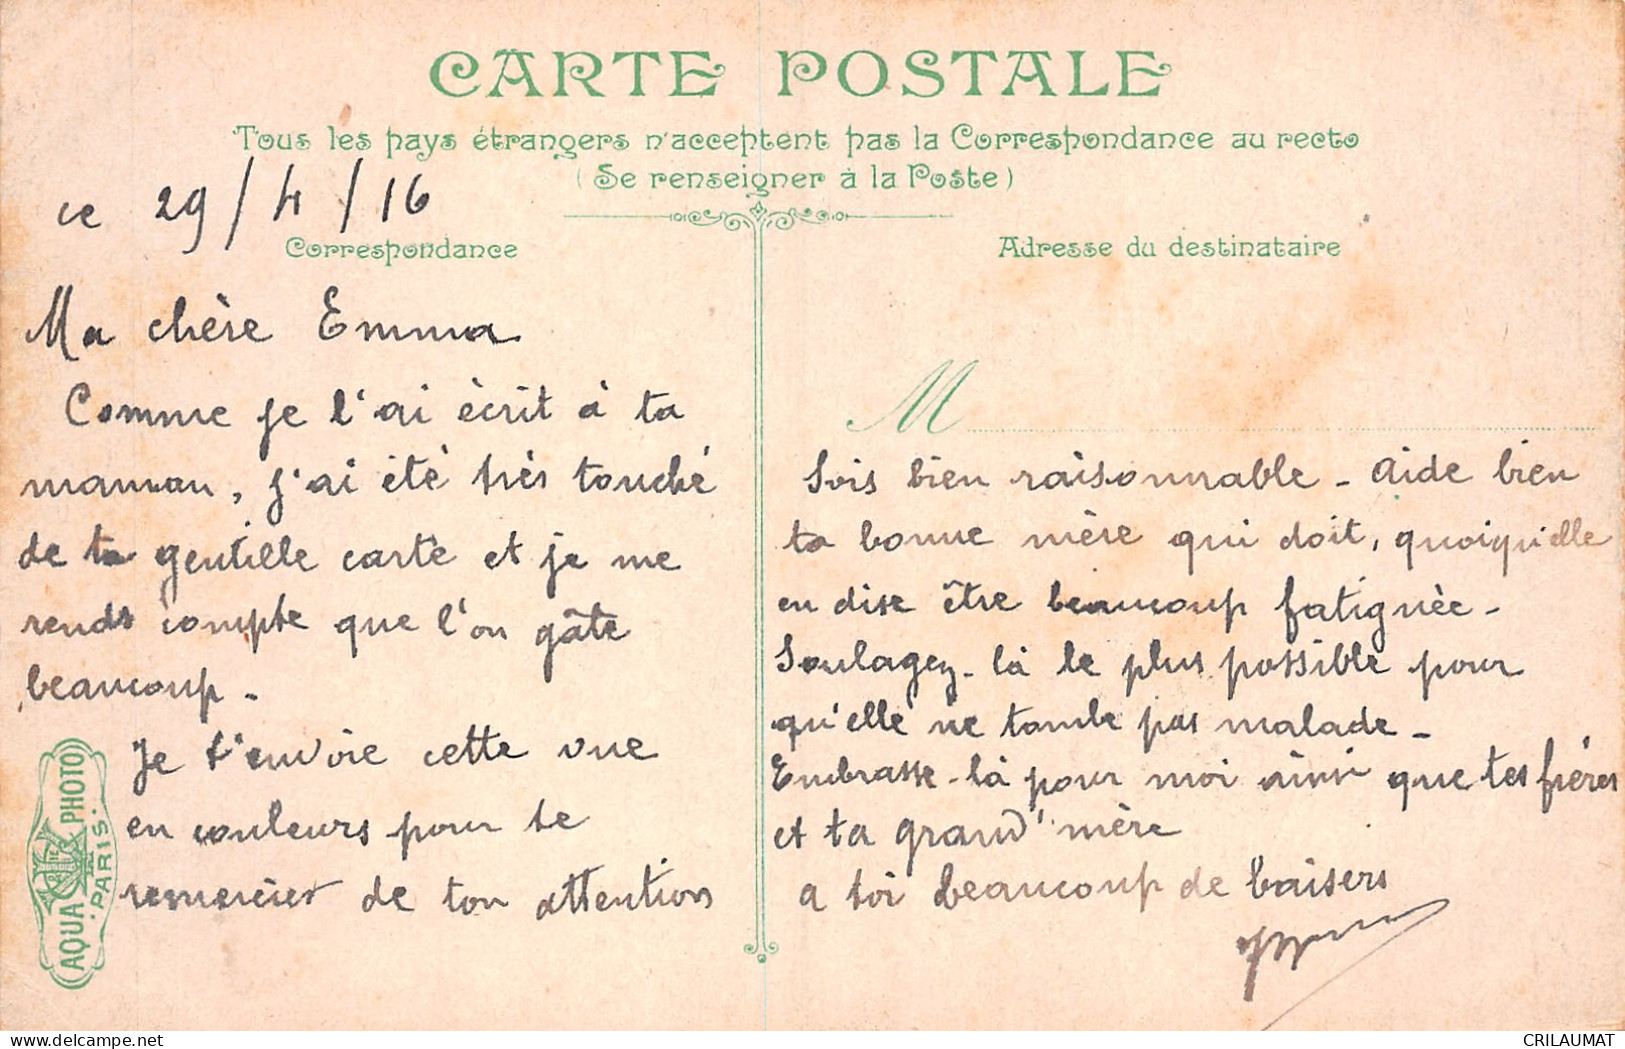 CARTE POSTALE
Tous les pays étrangers n'acceptent pas la Correspondance au recto
(Se renseigner à la Poste)
ce 29/4/16
Correspondance
Ma chère Emma
Comme je l'ai écrit à ta
maman, j'ai été très touché
de ta gentille carte et je me
rends compte que l'on gâte
beaucoup -
Je t'envoie cette vue
en couleurs pour te
remercier de ton attention
AQUA PHOTO
PARIS
Adresse du destinataire
M
Sois bien raisonnable - aide bien
ta bonne mère qui doit, quoiqu'elle
en dise être beaucoup fatiguée -
Soulagez-là le plus possible pour
qu'elle ne tombe pas malade -
Embrasse-là pour moi ainsi que tes frères
et ta grand'mère
a toi beaucoup de baisers
CRILAUMAT